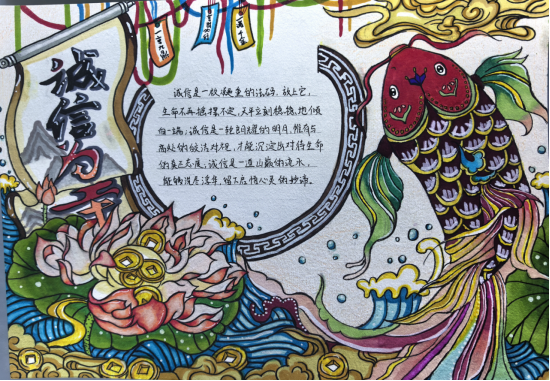 诚信为本
一言九鼎
一诺千金
诚信是一枚凝重的砝码，放上它，
生命不再摇摆不定，天平立刻稳稳地倾
向一端；诚信是一轮朗耀的明月，惟有与
高处的皎洁对视，才能沉淀出对待生命
的真正态度；诚信是一道山巅的流水，
能够洗尽浮华，留下启悟心灵的妙谛。